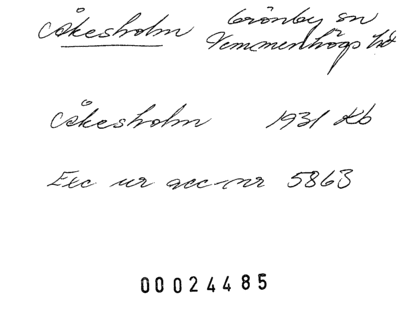 Åkesholm Grönby sn
Vemmenhögs hd
Åkesholm 1931 Kb
Exc ur acc-nr 5863
00024485